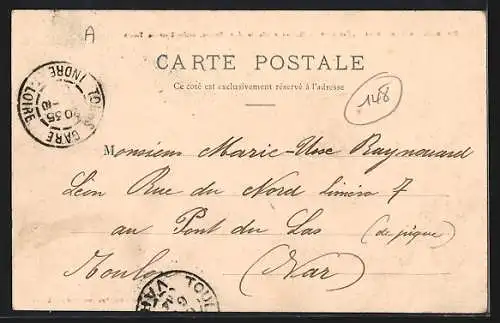 A
CARTE POSTALE
Ce côté est exclusivement réservé à l'adresse
148
TOURS GARE
INDRE ET LOIRE
Monsieur Marie-Use Raynouard
Léon Rue du Nord 7
au Pont du Las
Toulon (Var)
TOUL
VAR